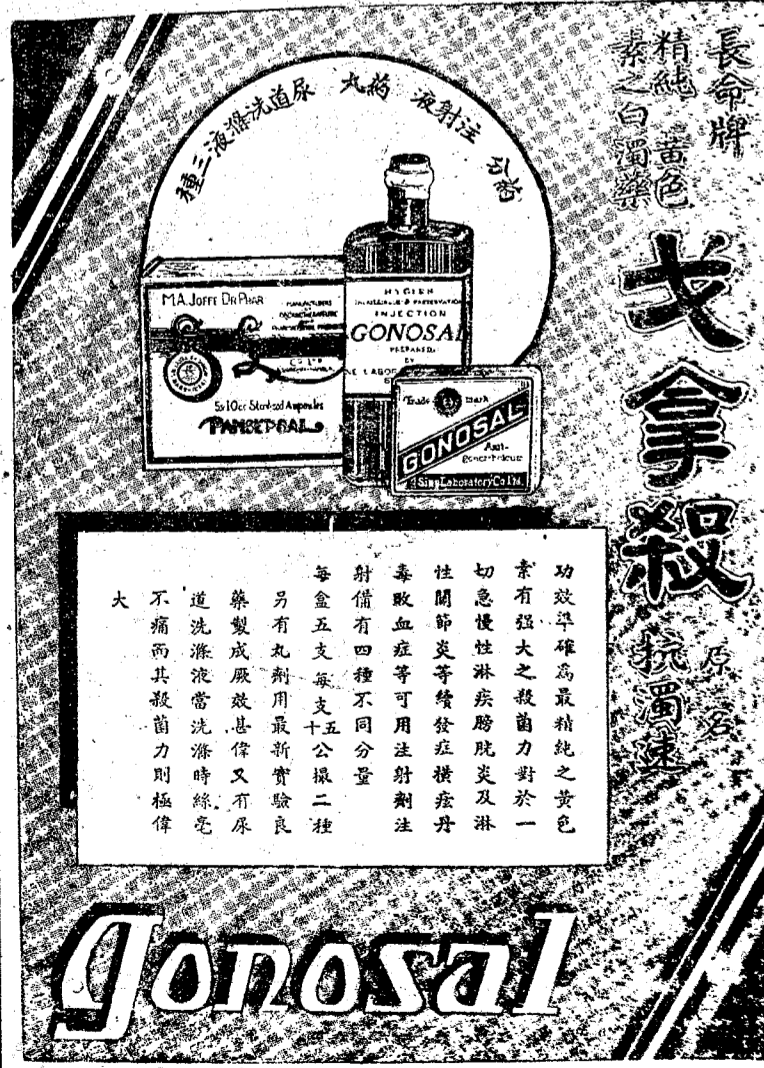 長命牌
精純黃色
素之白濁藥
戈拿殺
原名
抗濁速
分藥 注射液 藥丸 尿道洗滌液三種
M.A. JOFFE DR PHAR
MANUFACTURERS
5x10cc Sterilised Ampoules
PANSEPTOSAL
HYGIEN
INJECTION
GONOSAL
PREPARED
BY
Trade mark
GONOSAL
Anti-
Sine Laboratory Co Ltd.
功效準確爲最精純之黃色
素有强大之殺菌力對於一
切急慢性淋疾膀胱炎及淋
性關節炎等續發症橫痃丹
毒敗血症等可用注射劑注
射備有四種不同分量
每盒五支每支五十公撮二種
另有丸劑用最新實驗良
藥製成厥效甚偉又有尿
道洗滌液當洗滌時絲毫
不痛而其殺菌力則極偉
大
gonosal